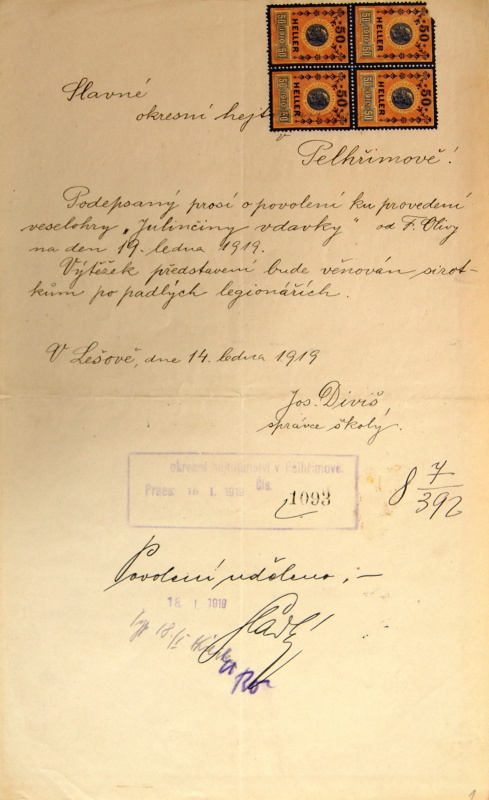 50 1910 50 HELLER 50 1910 50 HELLER
50 1910 50 HELLER 50 1910 50 HELLER
Slavné
okresní hejt
v
Pelhřimově!
Podepsaný prosí o povolení ku provedení
veselohry „Julinčiny vdavky" od F. Olivy
na den 19. ledna 1919.
Výtěžek představení bude věnován sirot-
kům po padlých legionářích.
V Lešově, dne 14. ledna 1919
Jos. Diviš,
správce školy.
okresní hejtmanství v Pelhřimově.
Praes: 16 I. 1919 Čís. 1093
8 7/392
Povolení uděleno ;–
18. I. 1919
18./I
1